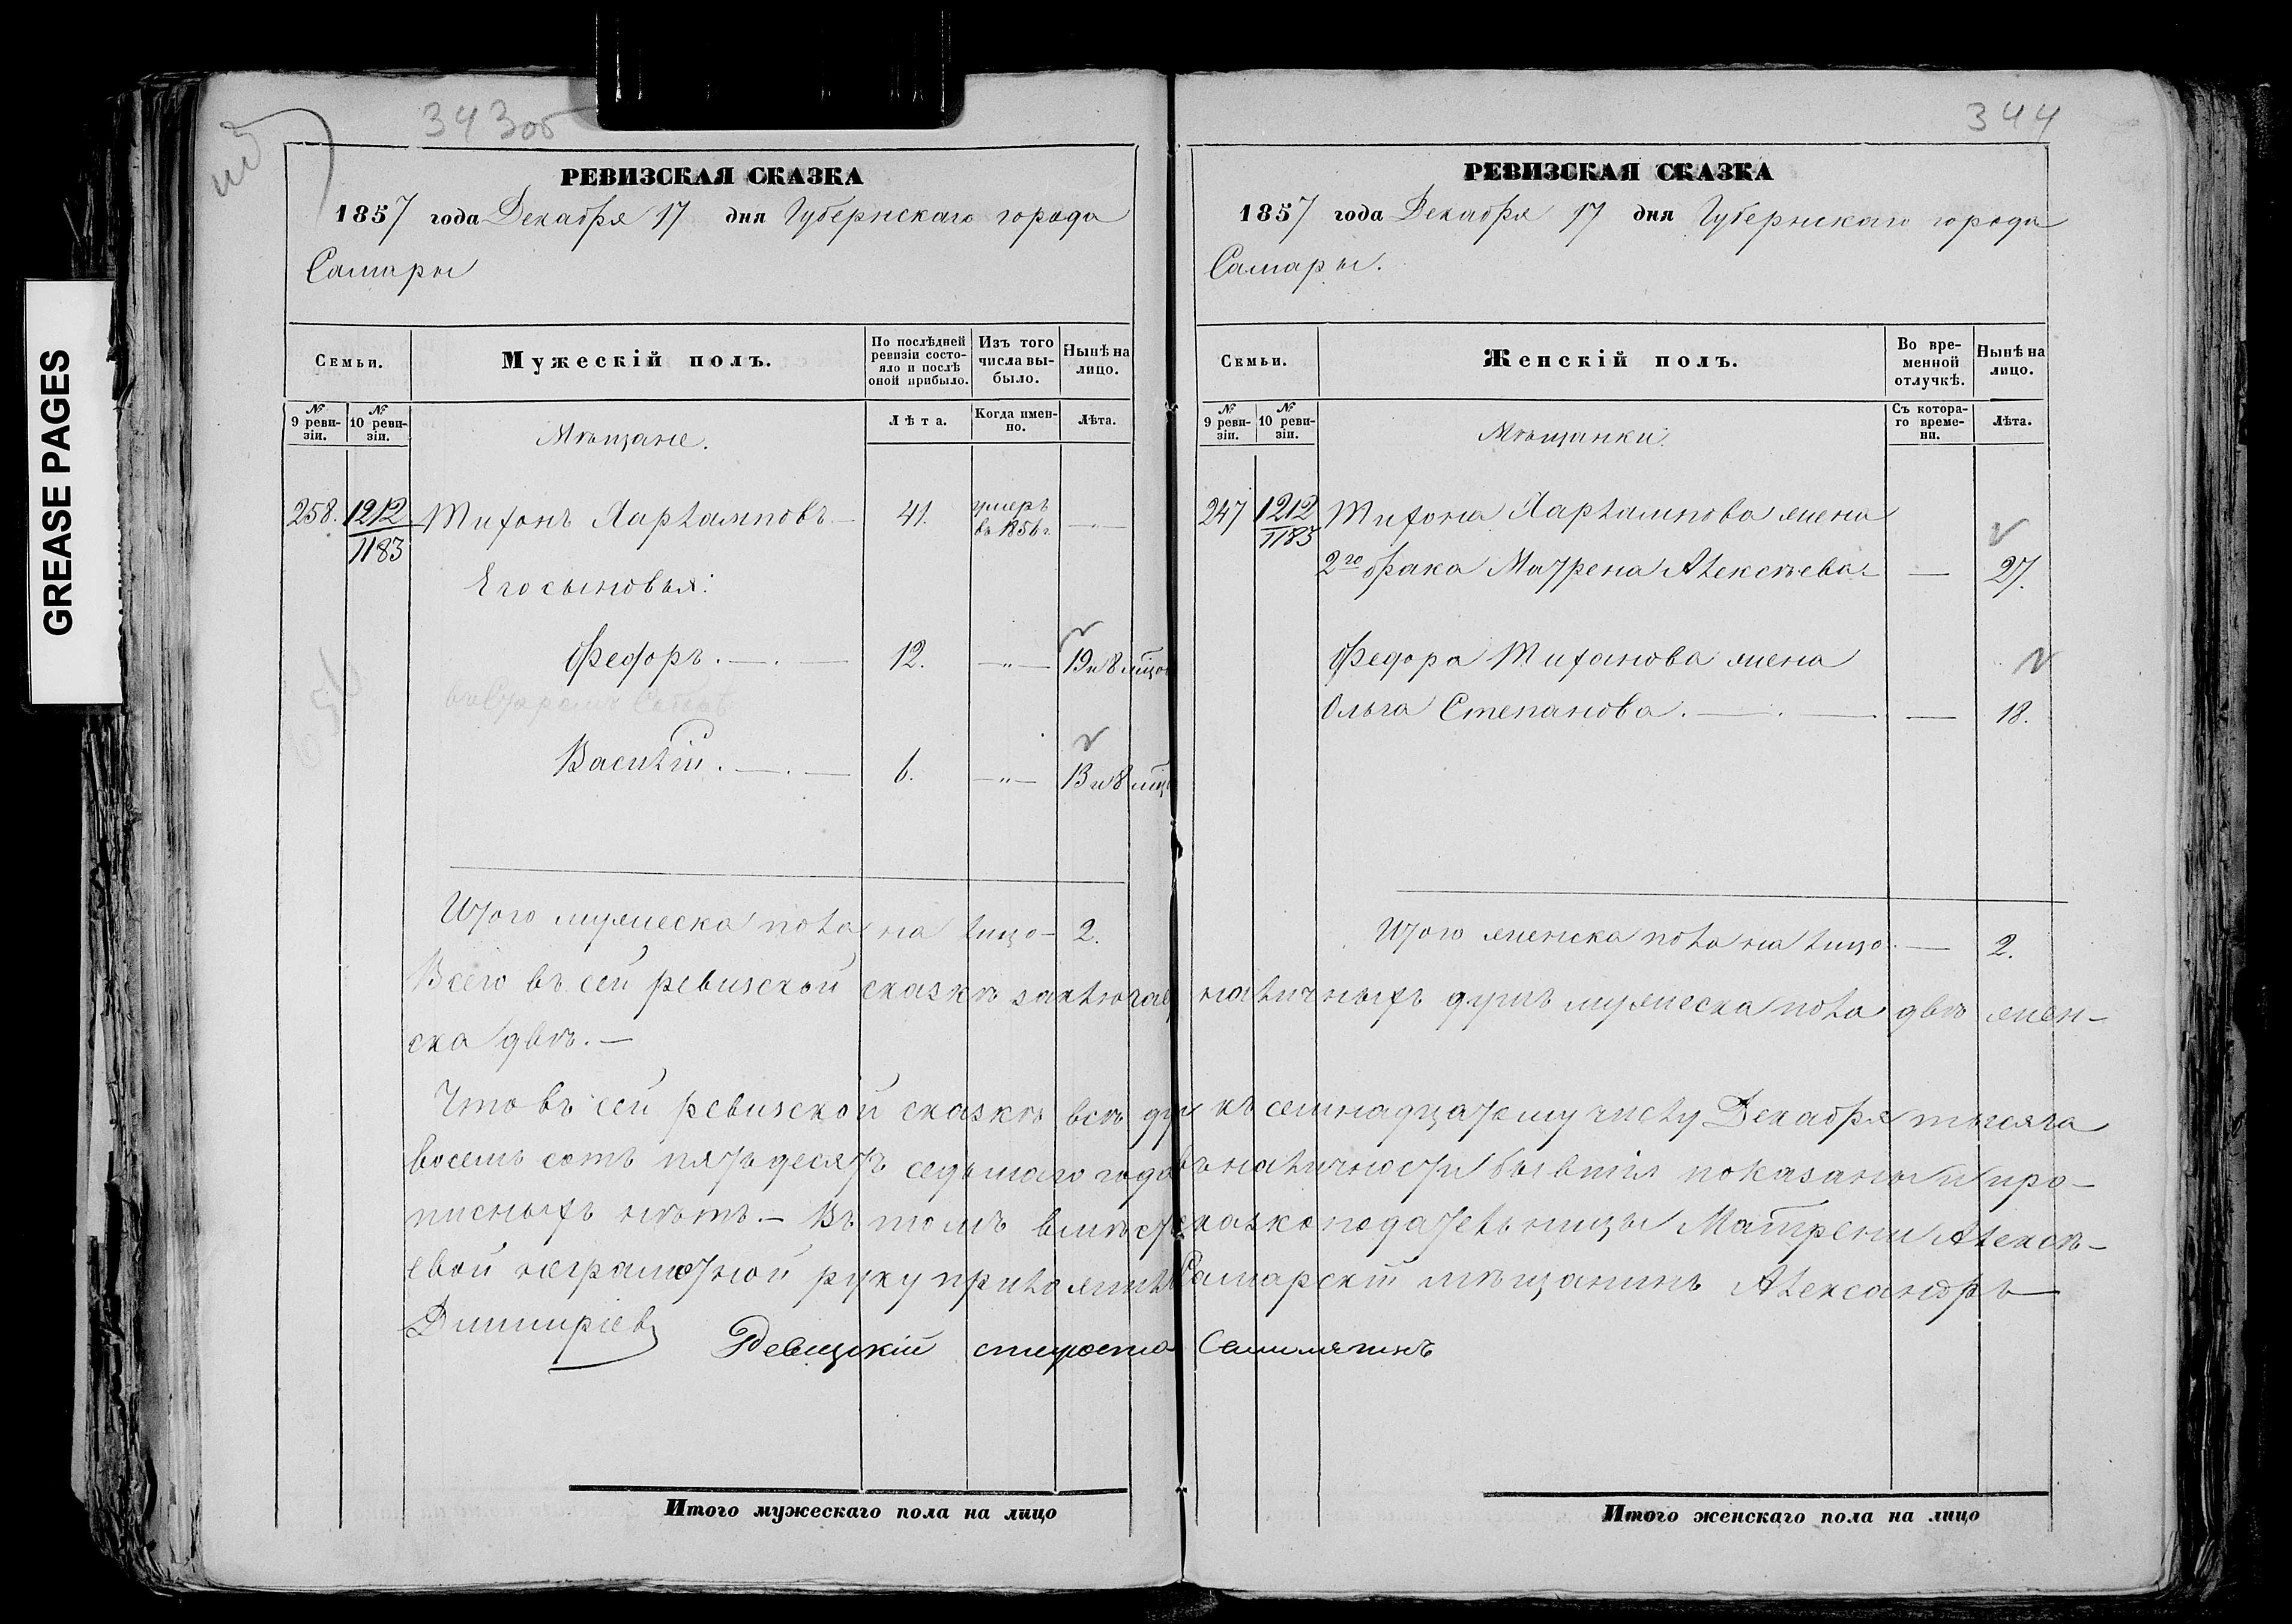 GREASE PAGES
343об
РЕВИЗСКАЯ СКАЗКА
1857 года Декабря 17 дня Губернскаго города
Самары
Семьи.
Мужескій полъ.
По послѣдней ревизіи состояло и послѣ оной прибыло.
Изъ того числа выбыло.
Нынѣ на лицо.
№ 9 ревизіи.
№ 10 ревизіи.
Мѣщане.
Лѣта.
Когда именно.
Лѣта.
258. 1212/1183 Тихонъ Харламповъ 41. умеръ въ 1856 г.
Его сыновья:
Федоръ. 12. 19 и 8 мѣцов
Василій. 6. 13 и 8 мѣц
Итого мужеска пола на лицо 2.
344
РЕВИЗСКАЯ СКАЗКА
1857 года Декабря 17 дня Губернскаго города
Самары.
Семьи.
Женскій полъ.
Во временной отлучкѣ.
Нынѣ на лицо.
№ 9 ревизіи.
№ 10 ревизіи.
Мѣщанки.
Съ котораго времени.
Лѣта.
247 1212/1183 Тихона Харлампова жена
2го брака Матрена Алексѣева — 27.
Федора Тихонова жена
Ольга Степанова. — 18.
Итого женска пола на лицо. — 2.
Всего въ сей ревизской сказкѣ заключае наличныхъ душъ мужеска пола двѣ жен-
ска двѣ. —
Что въ сей ревизской сказкѣ всѣ ду къ семнадцатому числу Декабря тысяча
восемь сотъ пятьдесятъ седьмаго года въ наличности бывшія показаны и про-
писныхъ нѣтъ. — Въ томъ вмѣст сказкоподательницы Матрены Алексѣ-
евой неграмотной руку приложилъ Самарскій мѣщанинъ Александръ
Димитріевъ
Ревизскій староста
Итого мужескаго пола на лицо
Итого женскаго пола на лицо